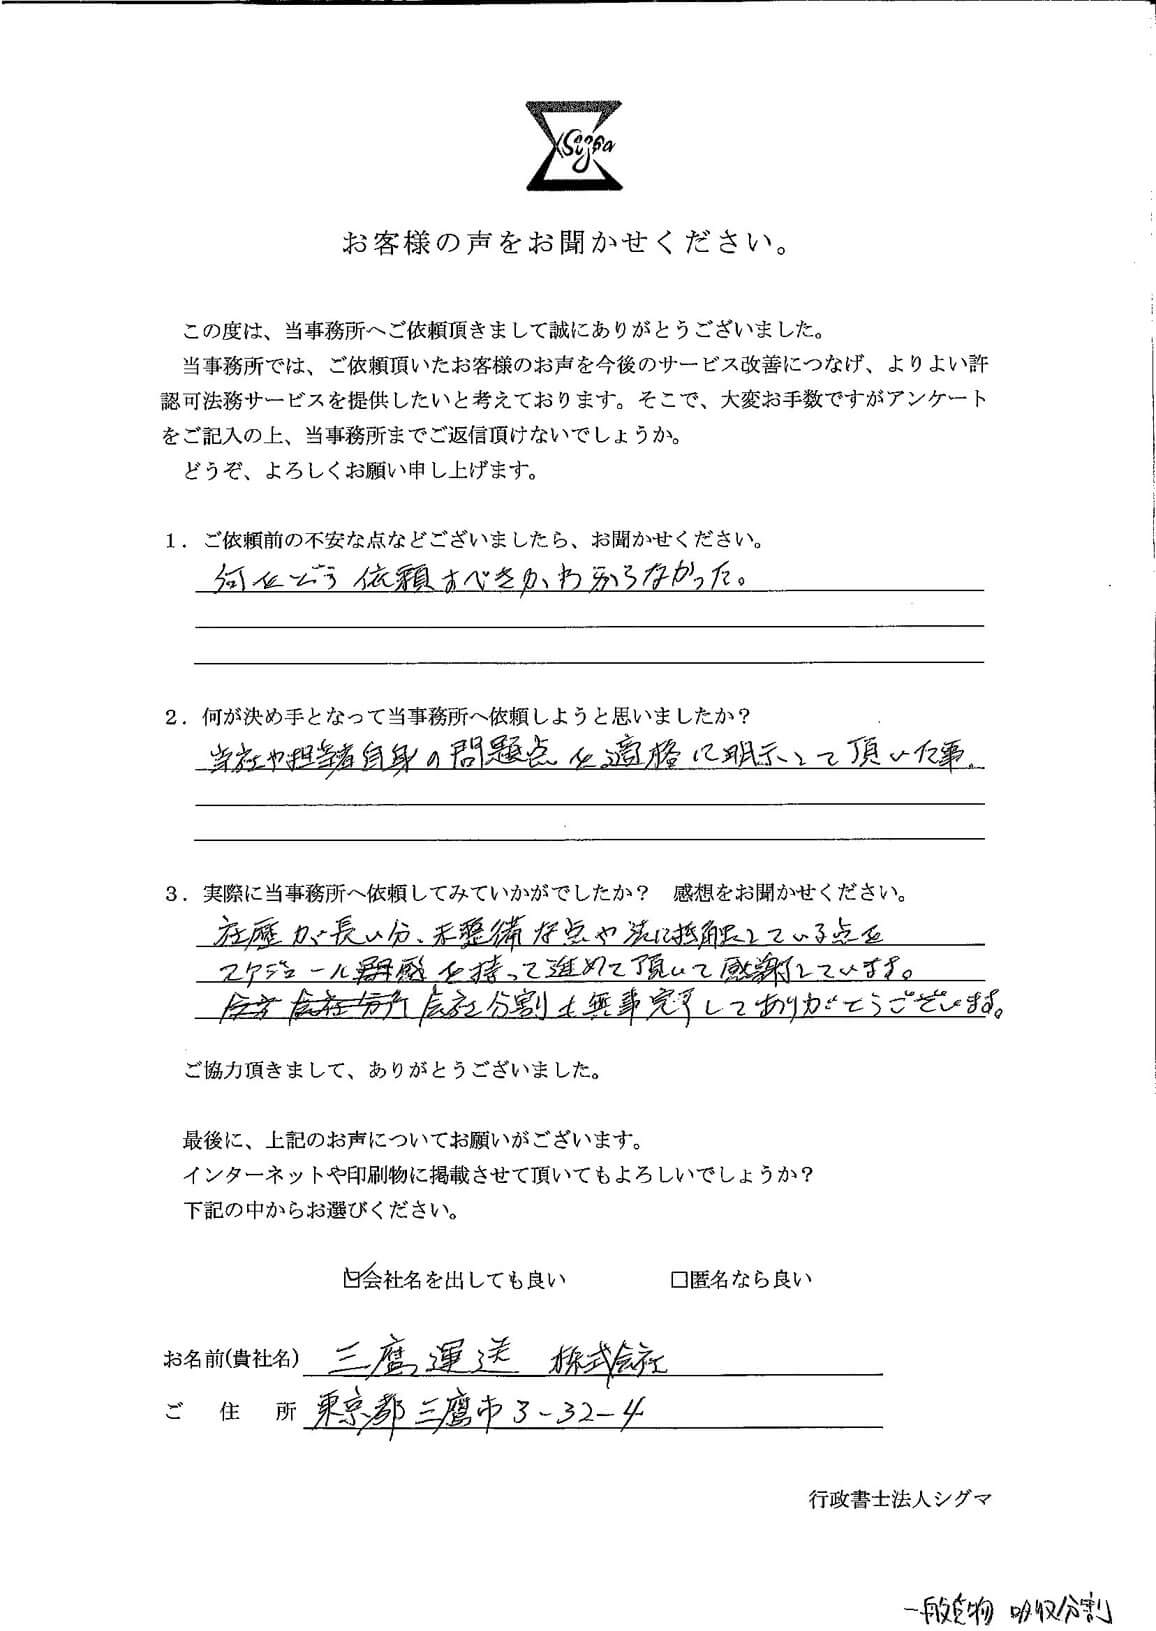 Sigma
お客様の声をお聞かせください。
この度は、当事務所へご依頼頂きまして誠にありがとうございました。
当事務所では、ご依頼頂いたお客様のお声を今後のサービス改善につなげ、よりよい許
認可法務サービスを提供したいと考えております。そこで、大変お手数ですがアンケート
をご記入の上、当事務所までご返信頂けないでしょうか。
どうぞ、よろしくお願い申し上げます。
１．ご依頼前の不安な点などございましたら、お聞かせください。
何をどう依頼すべきかわからなかった。
２．何が決め手となって当事務所へ依頼しようと思いましたか？
当社や担当者自身の問題点を適格に明示して頂いた事。
３．実際に当事務所へ依頼してみていかがでしたか？　感想をお聞かせください。
社歴が長い分、未整備な点や法に抵触している点を
スケジュール感を持って進めて頂いて感謝しています。
会社分割も無事完了してありがとうございます。
ご協力頂きまして、ありがとうございました。
最後に、上記のお声についてお願いがございます。
インターネットや印刷物に掲載させて頂いてもよろしいでしょうか？
下記の中からお選びください。
☑会社名を出しても良い　□匿名なら良い
お名前(貴社名) 三鷹運送 株式会社
ご住所 東京都三鷹市3-32-4
行政書士法人シグマ
一般貨物 吸収分割